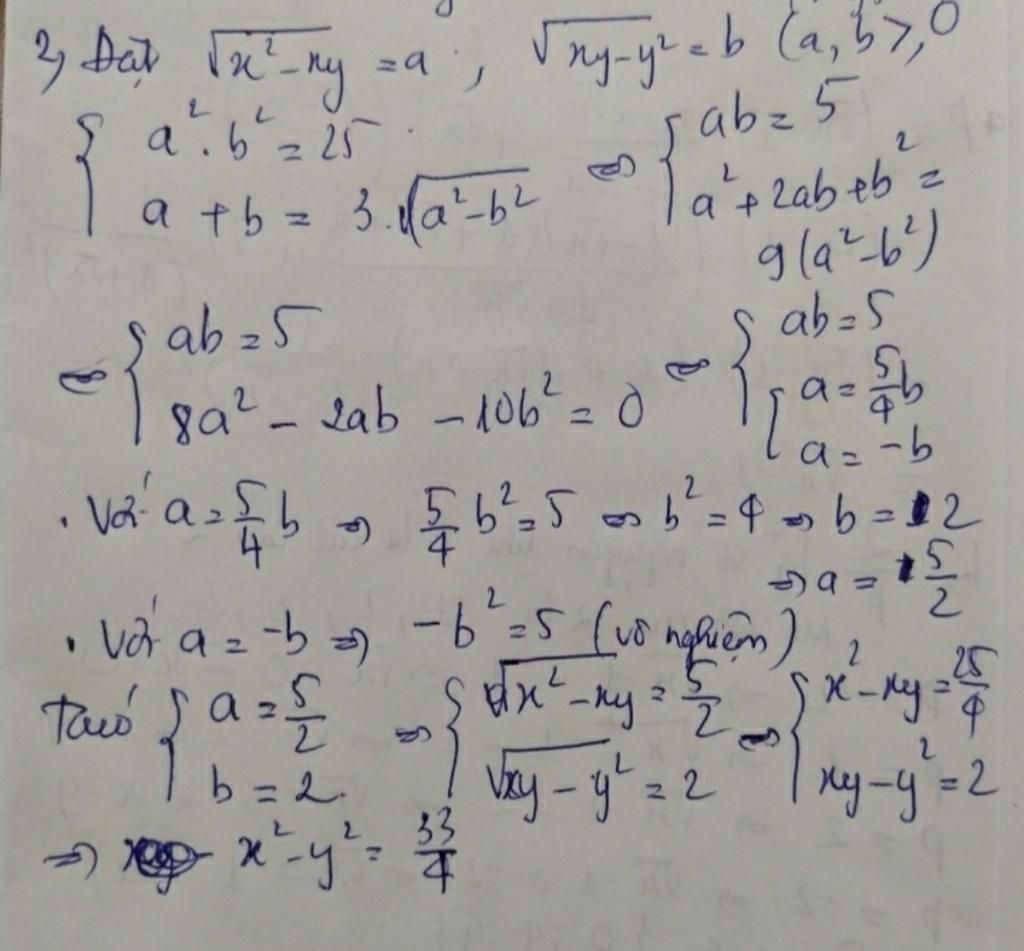 2, Đặt √(x²-xy) = a ; √(xy-y²) = b (a, b ≥ 0
{ a².b² = 25 ⇔ { ab = 5
a + b = 3.√(a²-b²) a²+2ab+b² =
9(a²-b²)
⇔ { ab = 5 ⇔ { ab = 5
8a² - 2ab - 10b² = 0 [ a = 5/4 b
a = -b
. Với a = 5/4 b ⇒ 5/4 b² = 5 ⇔ b² = 4 ⇒ b = 2
⇒ a = 5/2
. Với a = -b ⇒ -b² = 5 (vô nghiệm)
Ta có { a = 5/2 ⇒ { √(x²-xy) = 5/2 ⇔ { x²-xy = 25/4
b = 2. √(xy-y²) = 2 xy-y² = 2
⇒ x²-y² = 33/4